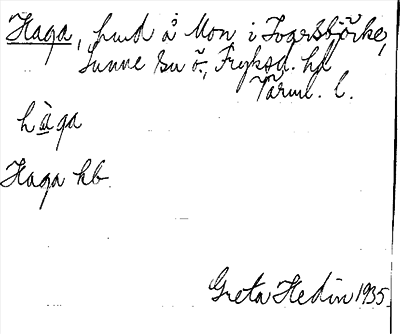 Haga, hmd å Mon i Ivarsbjörke,
Sunne sn ö., Fryksd. hd
Värml. l.
hàga
Haga kb.
Greta Hedin 1935.